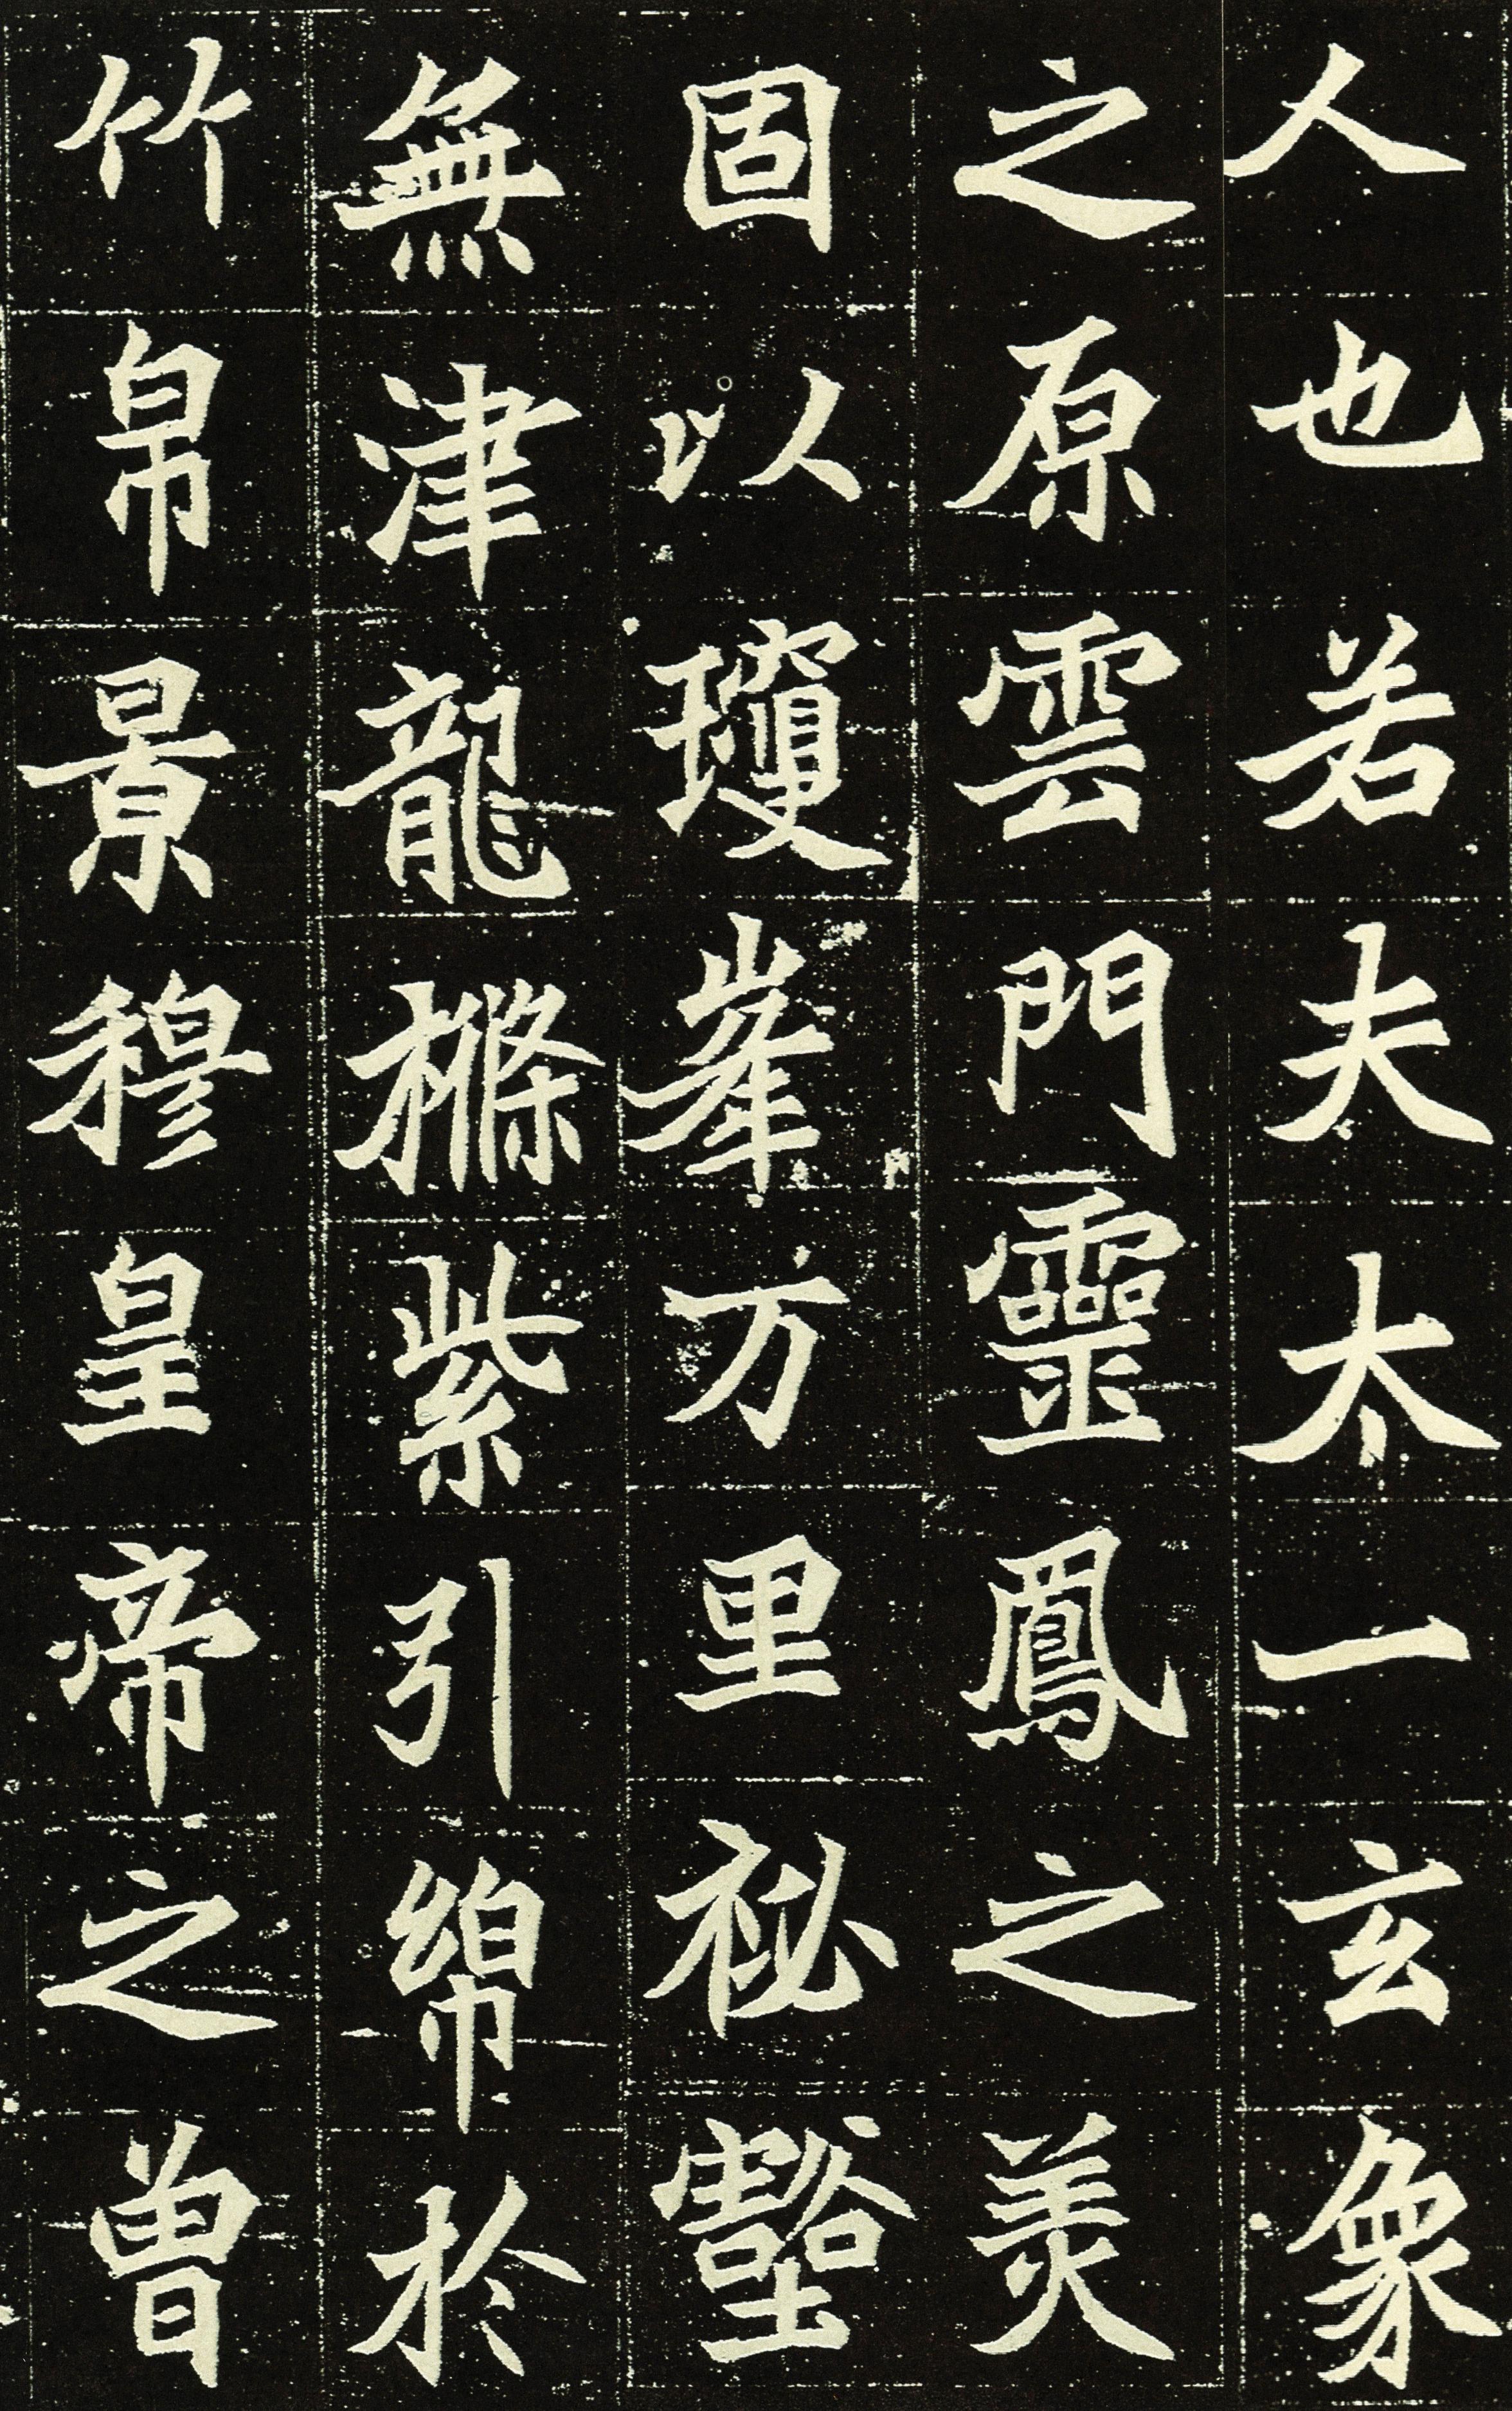 人也若夫太一玄象
之原雲門靈鳳之美
固以瓊峯万里祕壑
無津龍樤紫引綿於
竹帛景穆皇帝之曾